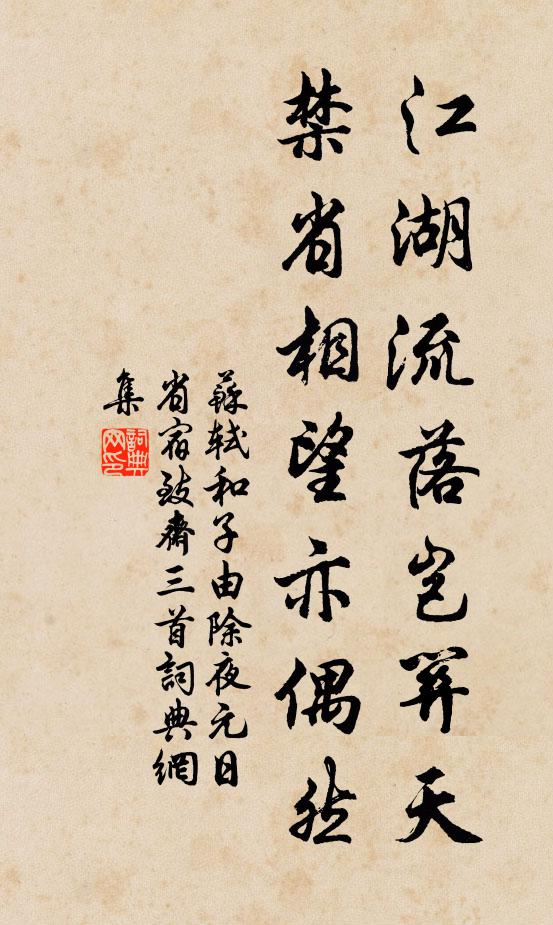 江湖流落岂關天
禁省相望亦偶然
蘇軾和子由除夜元日
省宿致齋三首詞典網
集
詞典
网印